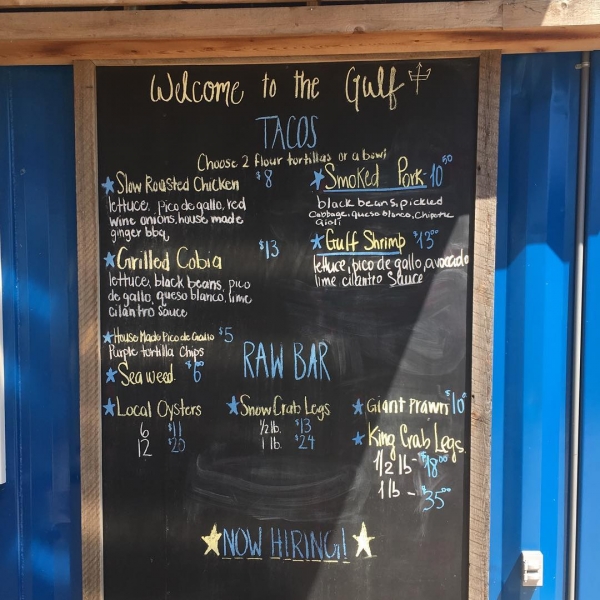 Welcome to the Gulf
TACOS
Choose 2 flour tortillas or a bowl
Slow Roasted Chicken $8
lettuce, pico de gallo, red
wine onions, house made
ginger bbq
Grilled Cobia $13
lettuce, black beans, pico
de gallo, queso blanco, lime
cilantro sauce
Smoked Pork 10⁵⁰
black beans, pickled
Cabbage, queso blanco, Chipotle
aioli
Gulf Shrimp $13⁰⁰
lettuce, pico de gallo, avocado
lime cilantro Sauce
House Made Pico de Gallo $5
Purple tortilla Chips
Seaweed $6
RAW BAR
Local Oysters
6 $11
12 $20
Snow Crab Legs
1/2 lb. $13
1 lb. $24
Giant Prawns $10
King Crab Legs
1/2 lb - $18⁰⁰
1 lb - $35⁰⁰
NOW HIRING!